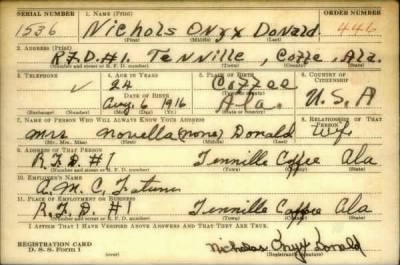 SERIAL NUMBER 1. NAME (Print) ORDER NUMBER
1536 Nichols Onyx Donald 446
(First) (Middle) (Last)
2. ADDRESS (Print)
R.F.D.#1 Tennille, Coffe, Ala.
(Number and street or R. F. D. number) (Town) (County) (State)
3. TELEPHONE 4. AGE IN YEARS 5. PLACE OF BIRTH 6. COUNTRY OF CITIZENSHIP
✓ 24 Coffee
DATE OF BIRTH (Town or county)
Aug. 6 1916 Ala. U.S.A
(Exchange) (Number) (Mo.) (Day) (Yr.) (State or country)
7. NAME OF PERSON WHO WILL ALWAYS KNOW YOUR ADDRESS 8. RELATIONSHIP OF THAT PERSON
Mrs Novella (none) Donald Wife
(Mr., Mrs., Miss) (First) (Middle) (Last)
9. ADDRESS OF THAT PERSON
R.F.D #1 Tennille Coffee Ala
(Number and street or R. F. D. number) (Town) (County) (State)
10. EMPLOYER'S NAME
A. M. C.
11. PLACE OF EMPLOYMENT OR BUSINESS
R.F.D #1 Tennille Coffee Ala
(Number and street or R. F. D. number) (Town) (County) (State)
I AFFIRM THAT I HAVE VERIFIED ABOVE ANSWERS AND THAT THEY ARE TRUE.
REGISTRATION CARD
D. S. S. Form 1 Nicholas Onyx Donald
(Registrant's signature)